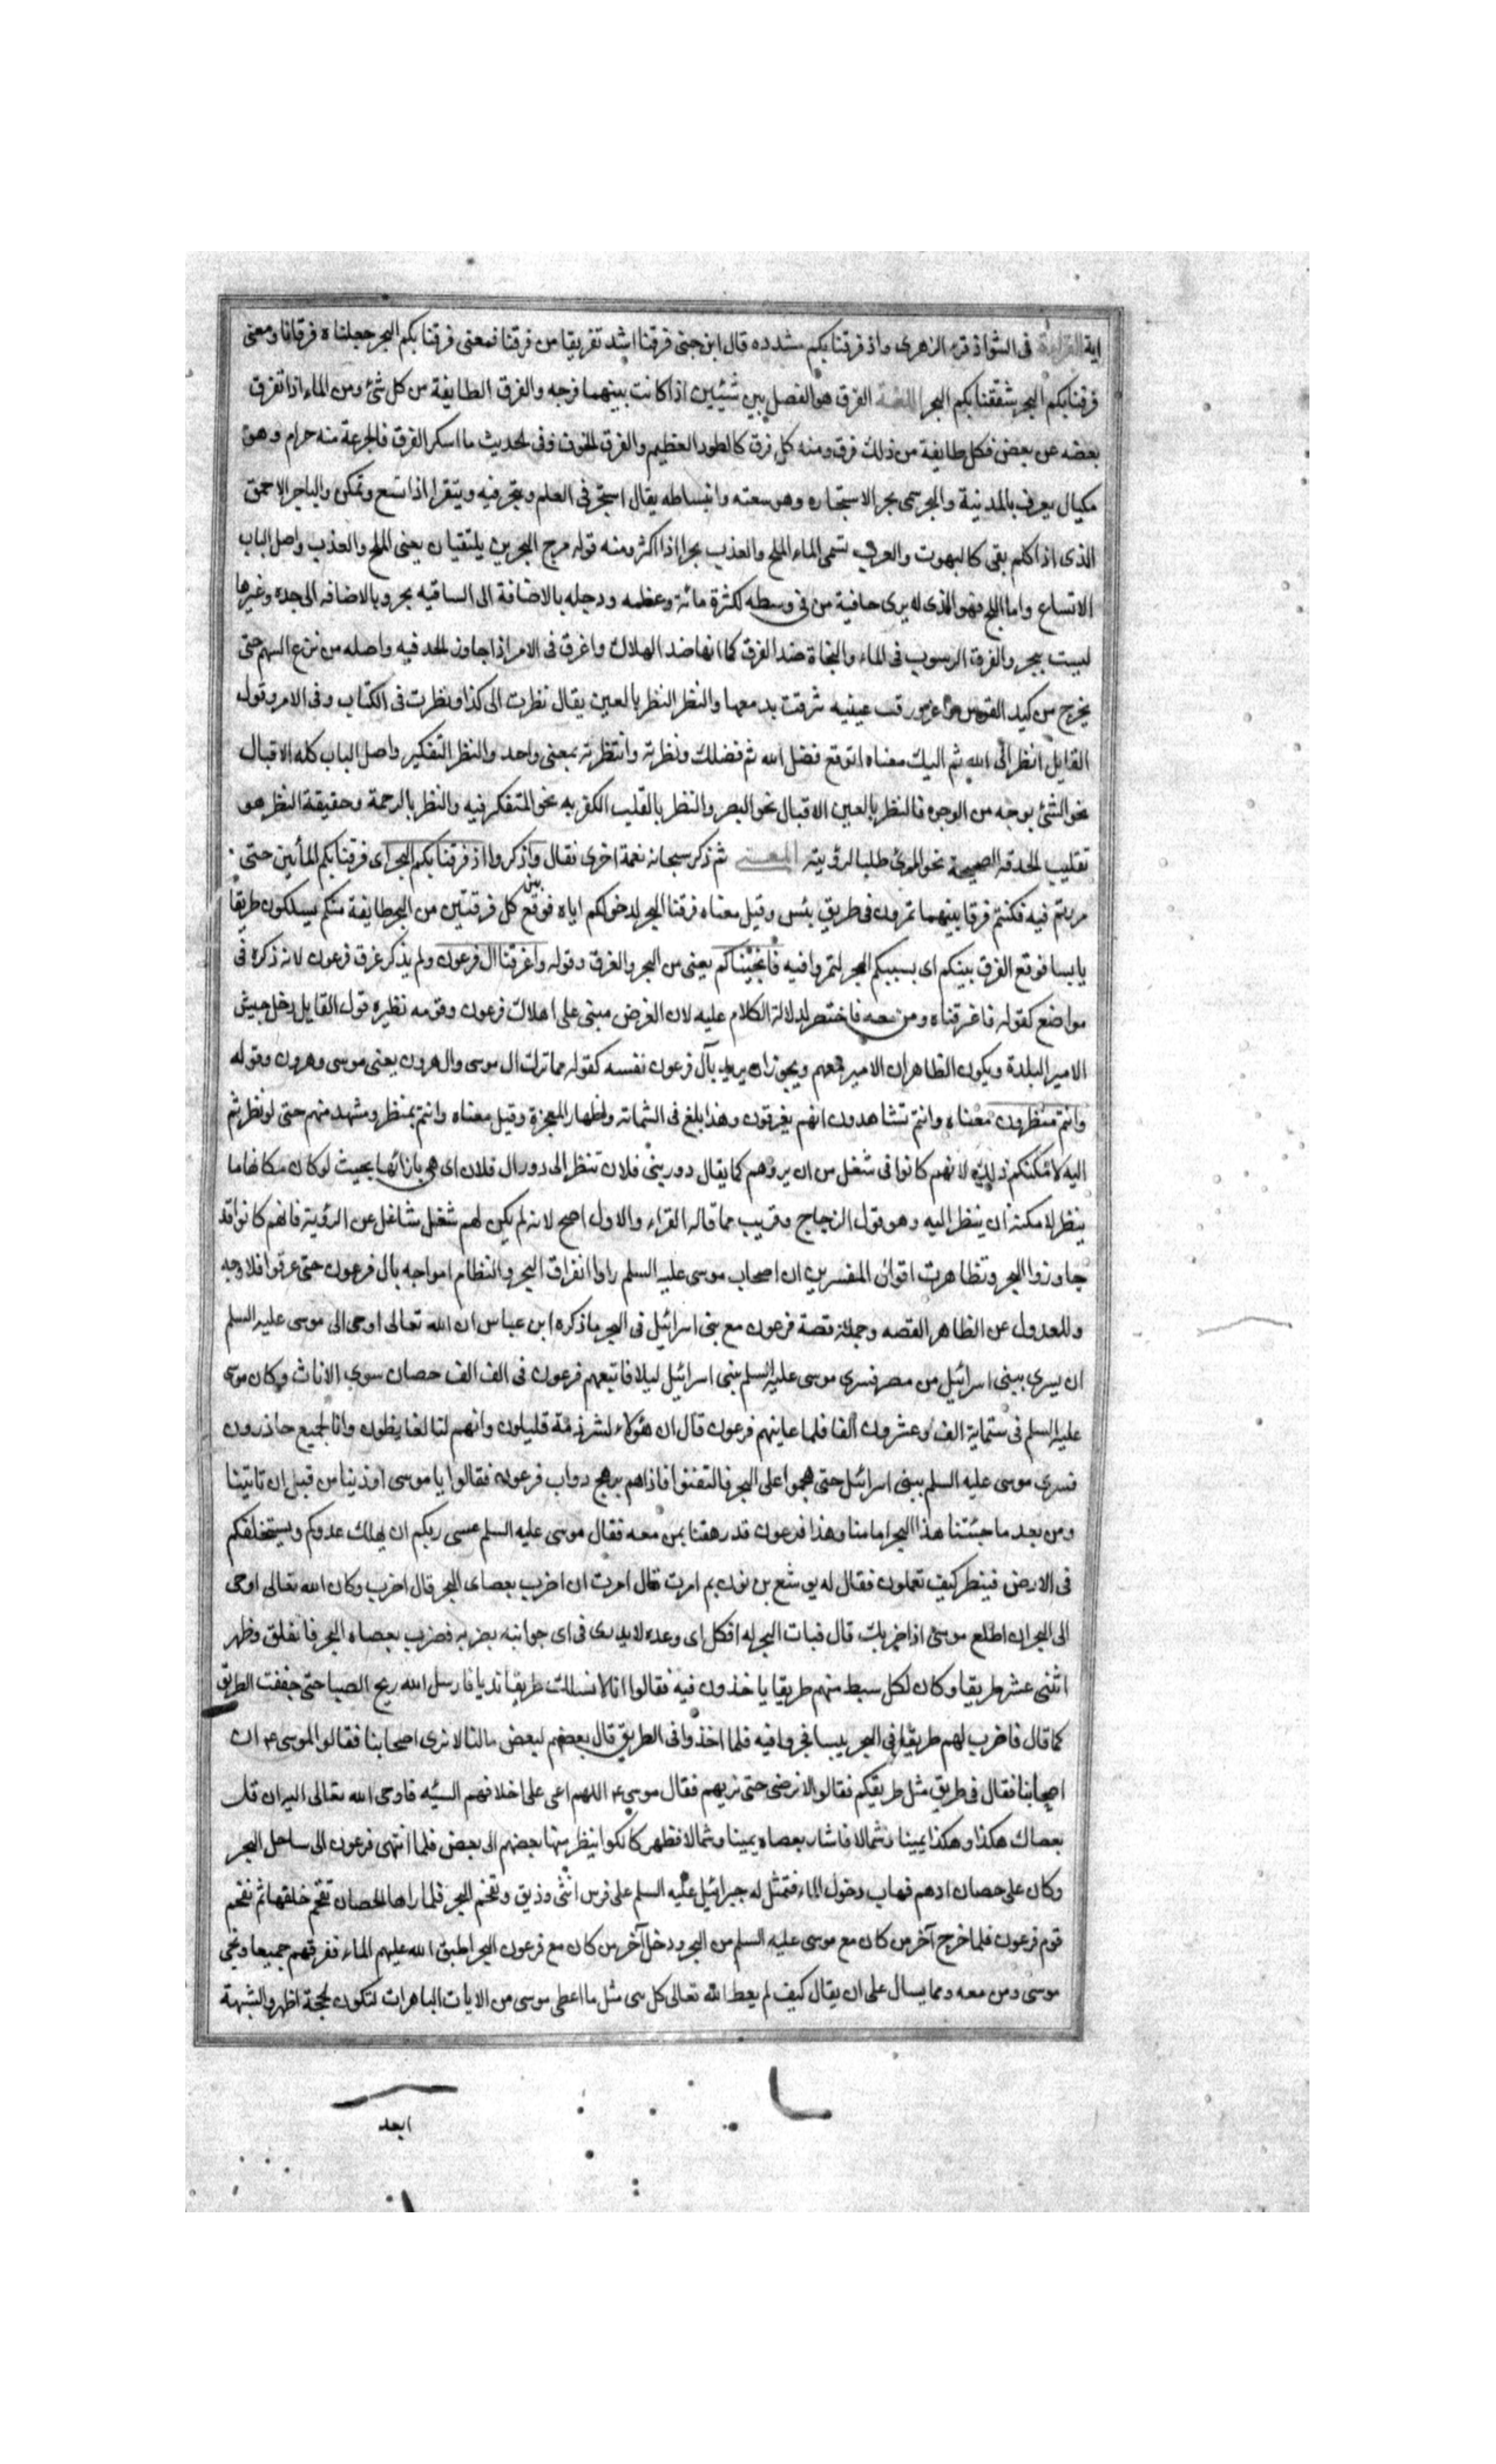 اية القراءة فى الشواذ قرء الزهرى واذ فرقنا بكم مشدده قال ابن جنى فرقنا اشد تفريقا من فرقنا فمعنى فرقنا بكم البحر جعلناه فرقانا ومعنى
فرقنا بكم البحر شققنا بكم البحر اللغة الفرق هو الفصل بين شيئين اذا كانت بينهما فرجه والفرق الطايفة من كل شئ ومن الماء اذا تفرق
بعضه عن بعض فكل طايفة من ذلك فرق ومنه كل فرق كالطود العظيم والفرق الخوف وفى الحديث ما اسكر الفرق فالجرعة منه حرام وهو
مكيال يعرف بالمدينة والبحر سمى بحر الاستبحاره وهو سعته وانبساطه يقال استبحر فى العلم وتبحر فيه وتبقر اذا اتسع وتمكن والباحر الاحمق
الذى اذا كلم بقى كالمبهوت والعرب تسمى الماء الملح والعذب بحرا اذا اكثر ومنه قوله مرج البحرين يلتقيان يعنى الملح والعذب واصل الباب
الاتساع واما البحر فهو الذى لا يرى حافية من فى وسطه لكثرة مائه وعظمه ودجله بالاضافة الى الساقيه بحر وبالاضافه الى جده وغيرها
ليست ببحر والغرق الرسوب فى الماء والنجاة ضد الغرق كما انها ضد الهلاك واغرق فى الامر اذا جاوز الحد فيه واصله من نزع السهم حتى
يخرج من كبد القوس واغرورقت عينيه شرقت بدمعها والنظر النظر بالعين يقال نظرت الى كذا ونظرت فى الكتاب وفى الامر وقول
القايل انظر الى الله ثم اليك معناه اتوقع فضل الله ثم فضلك ونظرته وانتظرته بمعنى واحد والنظر التفكير واصل الباب كله الاقبال
نحو الشئ بوجه من الوجوه فالنظر بالعين الاقبال نحو البصر والنظر بالقلب الكفر به نحو المتفكر فيه والنظر بالرحمة وحقيقة النظر هو
تقليب الحدقه الصحيحة نحو المرئ طلبا لرؤيته المعنى ثم ذكر سبحانه نعمة اخرى فقال واذكروا اذ فرقنا بكم البحر اى فرقنا بكم المائين حتى
مررتم فيه فكنتم فرقا بينهما تمرون فى طريق يبس وقيل معناه فرقنا البحر لدخولكم اياه فوقع بين كل فرقتين من البحر طايفة منكم يسلكون طريقا
يابسا فوقع الفرق بينكم اى بسببكم البحر لتمروا فيه فانجيناكم يعنى من البحر والغرق وقوله واغرقنا ال فرعون ولم يذكر غرق فرعون لانه ذكره فى
مواضع كقوله فاغرقناه ومن معه فاختصر لدلالة الكلام عليه لان الغرض مبنى على اهلاك فرعون وقومه نظيره قول القايل دخل جيش
الامير البلدة ويكون الظاهر ان الامير معهم ويجوز ان يريد بآل فرعون نفسه كقوله مما ترك ال موسى وال هرون يعنى موسى وهرون وقوله
وانتم تنظرون معناه وانتم تشاهدون انهم يغرقون وهذا ابلغ فى الشماته واظهار المعجزة وقيل معناه وانتم بمنظر ومشهد منهم حتى لو نظرتم
اليه لامكنكم ذلك لانهم كانوا فى شغل من ان يروهم كما يقال دور بنى فلان تنظر الى دور ال فلان اى هى بازائها بحيث لو كان مكانها ما
ينظر لامكنه ان ينظر اليه وهو قول الزجاج وقريب مما قاله الفراء والاول اصح لانه لم يكن لهم شغل شاغل عن الرؤية فانهم كانوا قد
جاوزوا البحر وتظاهرت اقوال المفسرين ان اصحاب موسى عليه السلم راوا انفراق البحر والتطام امواجه بال فرعون حتى غرقوا فلا وجه
وللعدول عن الظاهر القصه وجملة قصة فرعون مع بنى اسرائيل فى البحر ما ذكره ابن عباس ان الله تعالى اوحى الى موسى عليه السلم
ان يسرى ببنى اسرائيل من مصر فسرى موسى عليه السلم ببنى اسرائيل ليلا فاتبعهم فرعون فى الف الف حصان سوى الاناث وكان موسى
عليه السلم فى ستماية الف وعشرون الفا فلما عاينهم فرعون قال ان هؤلاء لشرذمة قليلون وانهم لنا لغايظون وانا لجميع حاذرون
فسرى موسى عليه السلم ببنى اسرائيل حتى هجموا على البحر فالتفتوا فاذا هم برهج دواب فرعون فقالوا يا موسى اوذينا من قبل ان تاتينا
ومن بعد ما جئتنا هذا البحر امامنا وهذا فرعون قد رهقنا بمن معه فقال موسى عليه السلم عسى ربكم ان يهلك عدوكم ويستخلفكم
فى الارض فينظر كيف تعملون فقال له يوشع بن نون بم امرت قال امرت ان اضرب بعصاى البحر قال اضرب وكان الله تعالى اوحى
الى البحر ان اطلع موسى اذا ضربك قال فبات البحر له افكل اى وعده لا يدرى فى اى جوانبه يضربه فضرب بعصاه البحر فانفلق وظهر
اثنى عشر طريقا وكان لكل سبط منهم طريقا ياخذون فيه فقالوا انا لا نسلك طريقا نديا فارسل الله ريح الصبا حتى جففت الطريق
كما قال فاضرب لهم طريقا فى البحر يبسا فجروا فيه فلما اخذوا فى الطريق قال بعضهم لبعض مالنا لا نرى اصحابنا فقالوا لموسى ع ان
اصحابنا فقال فى طريق مثل طريقكم فقالوا لا نرضى حتى نريهم فقال موسى ع اللهم اعنى على اخلاقهم السيئه فاوحى الله تعالى اليه ان قل
بعصاك هكذا وهكذا يمينا وشمالا فاشار بعصاه يمينا وشمالا فظهر كالكوا ينظر منها بعضهم الى بعض فلما انتهى فرعون الى ساحل البحر
وكان على حصان ادهم فهاب دخول الماء فتمثل له جبرائيل عليه السلم على فرس انثى وذيق وتقحم البحر فلما راها الحصان تقحم خلفها ثم تقحم
قوم فرعون فلما خرج آخر من كان مع موسى عليه السلم من البحر ودخل آخر من كان مع فرعون البحر اطبق الله عليهم الماء فغرقهم جميعا ونجى
موسى ومن معه ومما يسال على ان يقال كيف لم يعط الله تعالى كل نبى مثل ما اعطى موسى من الايات الباهرات لتكون الحجة اظهر والشبهة
ابعد